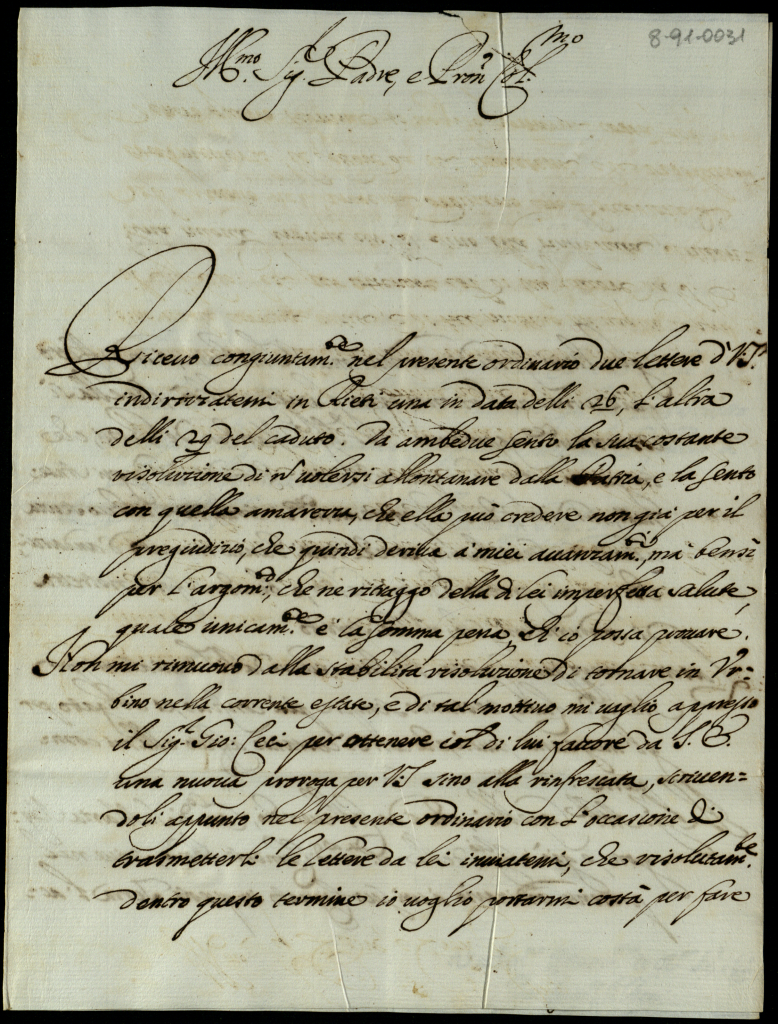 8-91-0031
Ill.mo Sig.r Padre, e Pron Col.mo
Riceuo congiuntam.te nel presente ordinario due lettere di V.S.
indirizzatemi in Rieti una in data delli 26, l'altra
delli 29 del caduto. Da ambedue sento la sua costante
risoluzione di n uolersi allontanare dalla Patria, e la sento
con quella amarezza, che ella può credere non già per il
pregiudizio, che quindi deriua a' miei auanzam.ti, mà bensì
per l'argom.to, che ne ritraggo della di lei imperfetta salute,
quale unicam.te è la somma pena, ch'io possa prouare.
Non mi rimuouo dalla stabilita risoluzione di tornare in Vr-
bino nella corrente estate, e di tal mottiuo mi uaglio appresso
il Sig.r Gio: Ceci per ottenere col di lui fauore da S. S.
una nuoua proroga per V.S. sino alla rinfrescata, scriuen-
doli appunto nel presente ordinario con l'occasione di
trasmetterli le lettere da lei inuiatemi, che risolutam.te
dentro questo termine io uoglio portarmi costà per fare